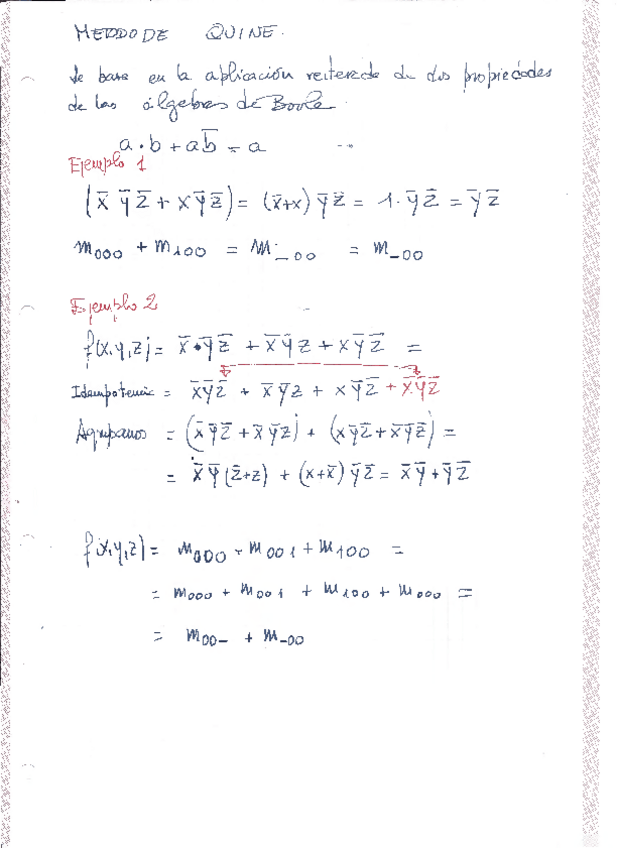 METODO DE QUINE.
Se basa en la aplicación reiterada de dos propiedades
de las álgebras de Boole.
a·b + ab̅ = a
Ejemplo 1
(x̅ y̅ z̅ + x y̅ z̅) = (x̅+x) y̅ z̅ = 1· y̅ z̅ = y̅ z̅
m000 + m100 = m_00 = m_00
Ejemplo 2
f(x,y,z) = x̅·y̅ z̅ + x̅ y̅ z + x y̅ z̅ =
Idempotencia = x̅ y̅ z̅ + x̅ y̅ z + x y̅ z̅ + x̅ y̅ z̅
Agrupamos = (x̅ y̅ z̅ + x̅ y̅ z) + (x y̅ z̅ + x̅ y̅ z̅) =
= x̅ y̅ (z̅+z) + (x+x̅) y̅ z̅ = x̅ y̅ + y̅ z̅
f(x,y,z) = m000 + m001 + m100 =
= m000 + m001 + m100 + m000 =
= m00- + m-00